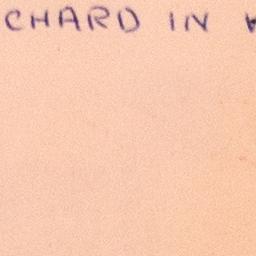 CHARD IN